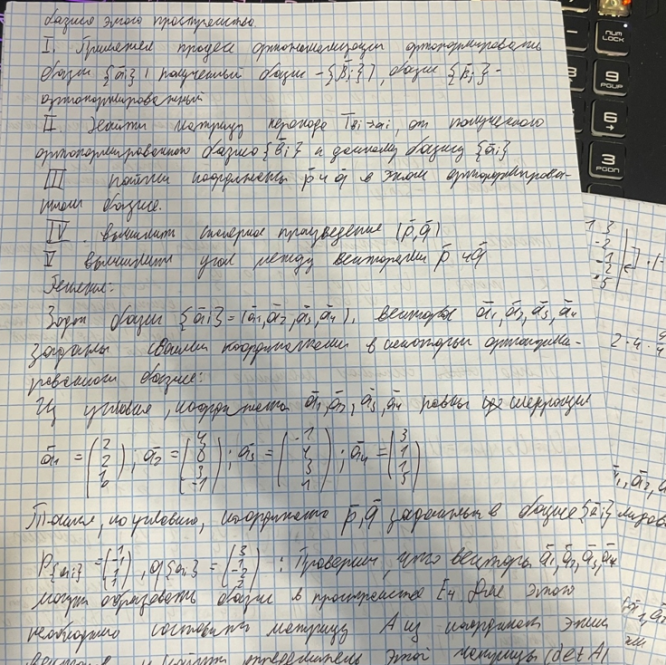 базисе этого пространства.
I. Применяя процесс ортогонализации ортонормировать
базис {ā_i}, полученный базис - {B̄_i}, базис {B̄_i} -
ортонормированный
II. Найти матрицу перехода T_{Bi→ai}, от полученного
ортонормированного базиса {B̄_i} к данному базису {ā_i}
III Найти координаты p̄ и q̄ в этом ортонормирован-
ном базисе.
IV. вычислить скалярное произведение (p̄,q̄)
V вычислить угол между векторами p̄ и q̄
Решение:
Задан базис {ā_i} = (ā1,ā2,ā3,ā4), векторы ā1,ā2,ā3,ā4
заданы своими координатами в некотором ортонорми-
рованном базисе:
Из условия, координаты ā1,ā2,ā3,ā4 равны следующие
ā1 = (2 2 1); ā2 = (4 0 3 -1); ā3 = (-1 4 3 1); ā4 = (3 1 1 5)
Также, по условию, координаты p̄,q̄ заданы в базисе {ā_i}
p{ai} = , q{ai} = ; Проверим, что векторы ā1,ā2,ā3,ā4
могут образовать базис в пространстве E4. Для этого
необходимо составить матрицу A из координат этих
векторов и найти определитель этой матрицы (det A)
NUM
LOCK
9
PGUP
6
3
PGDN